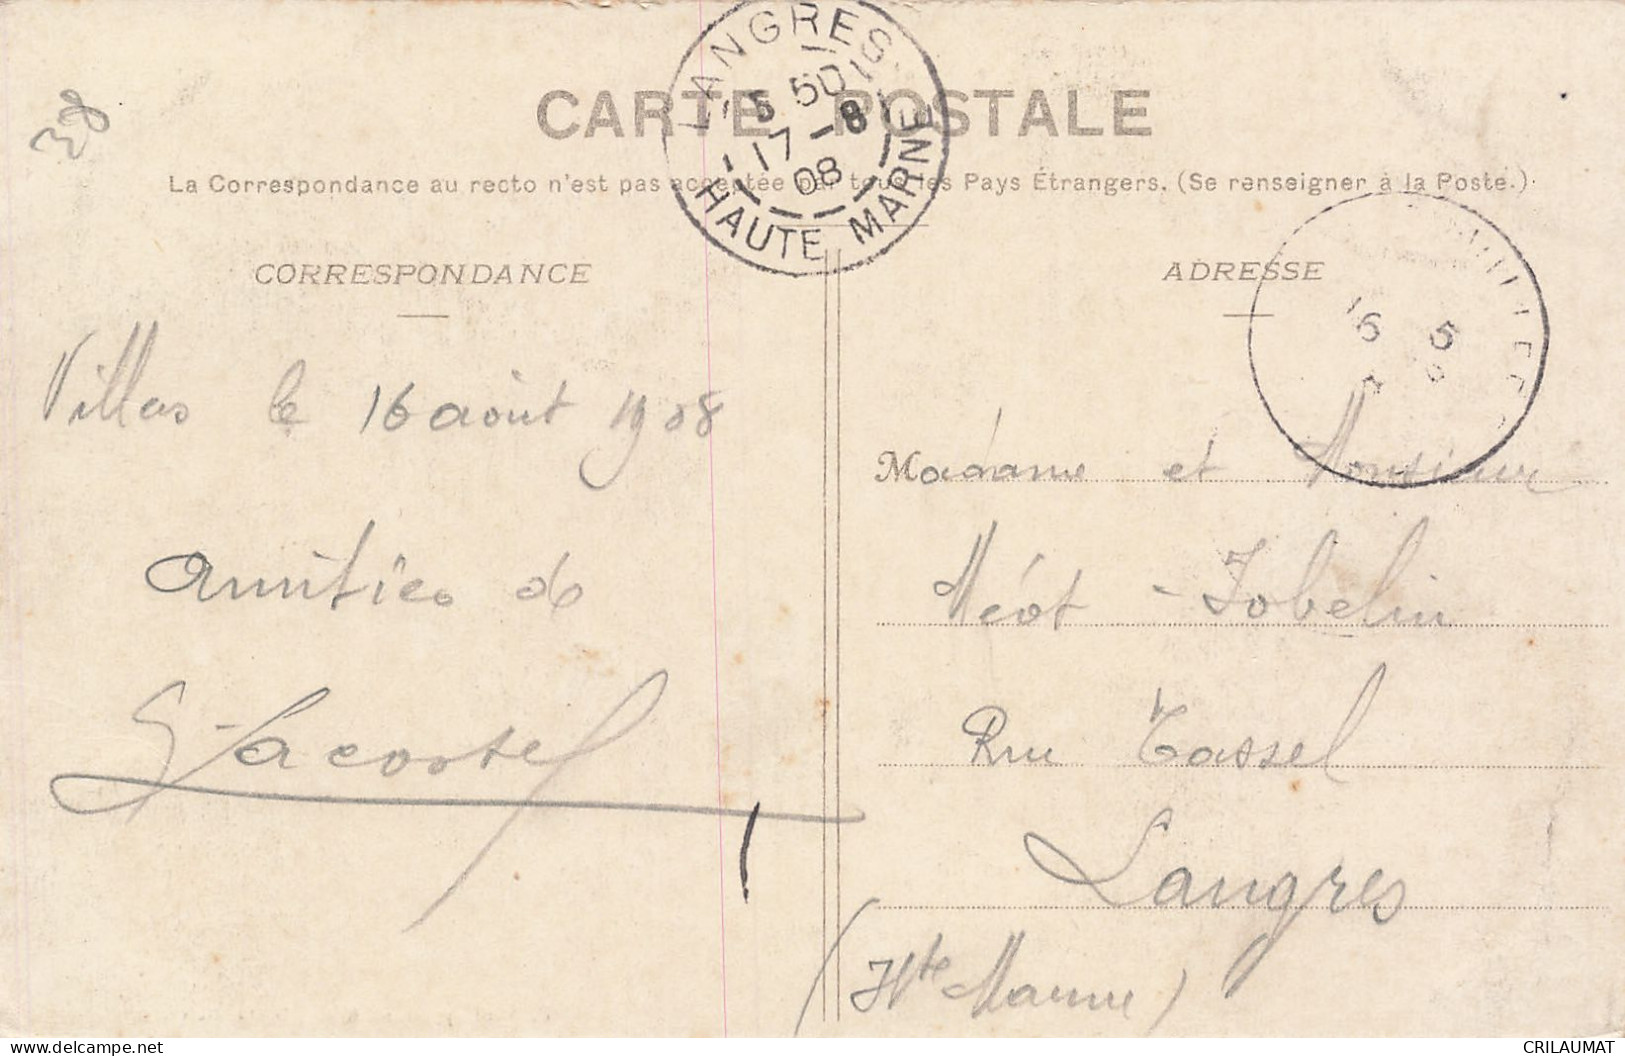 38
LANGRES
5 50
17-8
08
HAUTE MARNE
CARTE POSTALE
La Correspondance au recto n'est pas acceptée par tous les Pays Étrangers. (Se renseigner à la Poste.)
CORRESPONDANCE
Villas le 16 août 1908
Amitiés de
G. Lacoste
ADRESSE
16 5
Madame et Monsieur
Méot - Jobelin
Rue Tassel
Langres
(Hte Marne)
CRILAUMAT